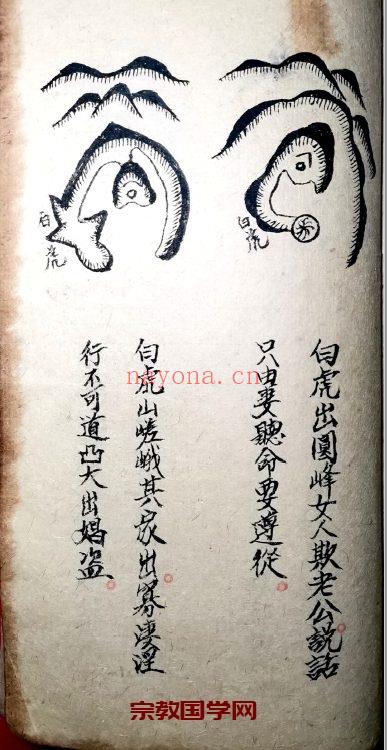 白虎
白虎
白虎出圓峰女人欺老公説話
只由妻聽命要遵從
白虎山嵯峨其家出寡凄淫
行不可道凸大出娼盗
nayona.cn
宗教国学网